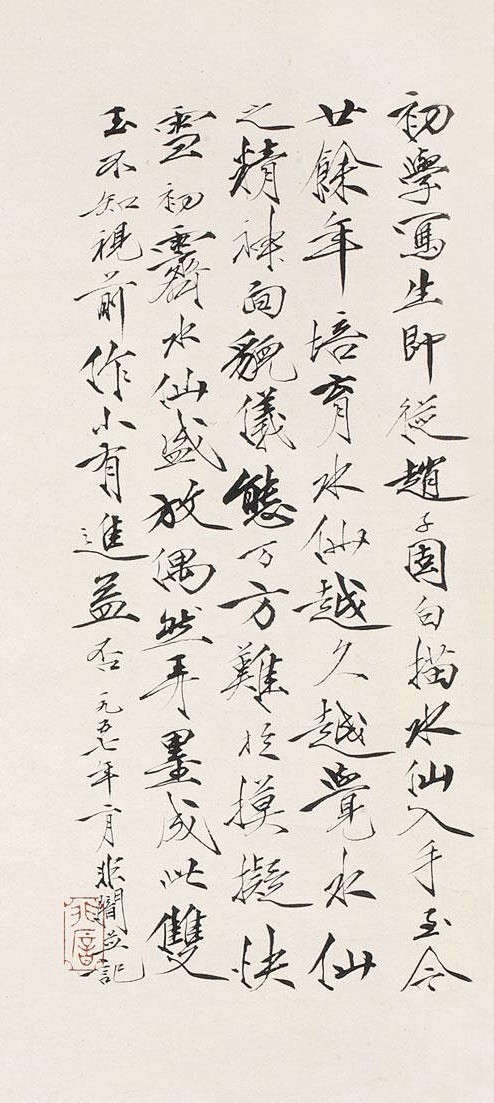 初學寫生即從趙子固白描水仙入手至今
廿餘年培育水仙越久越覺水仙
之精神面貌儀態万方難於摸擬快
雪初霽水仙盛放偶然弄墨成此雙
玉不知視前作小有進益否一九五七年一月非闇並記
非闇